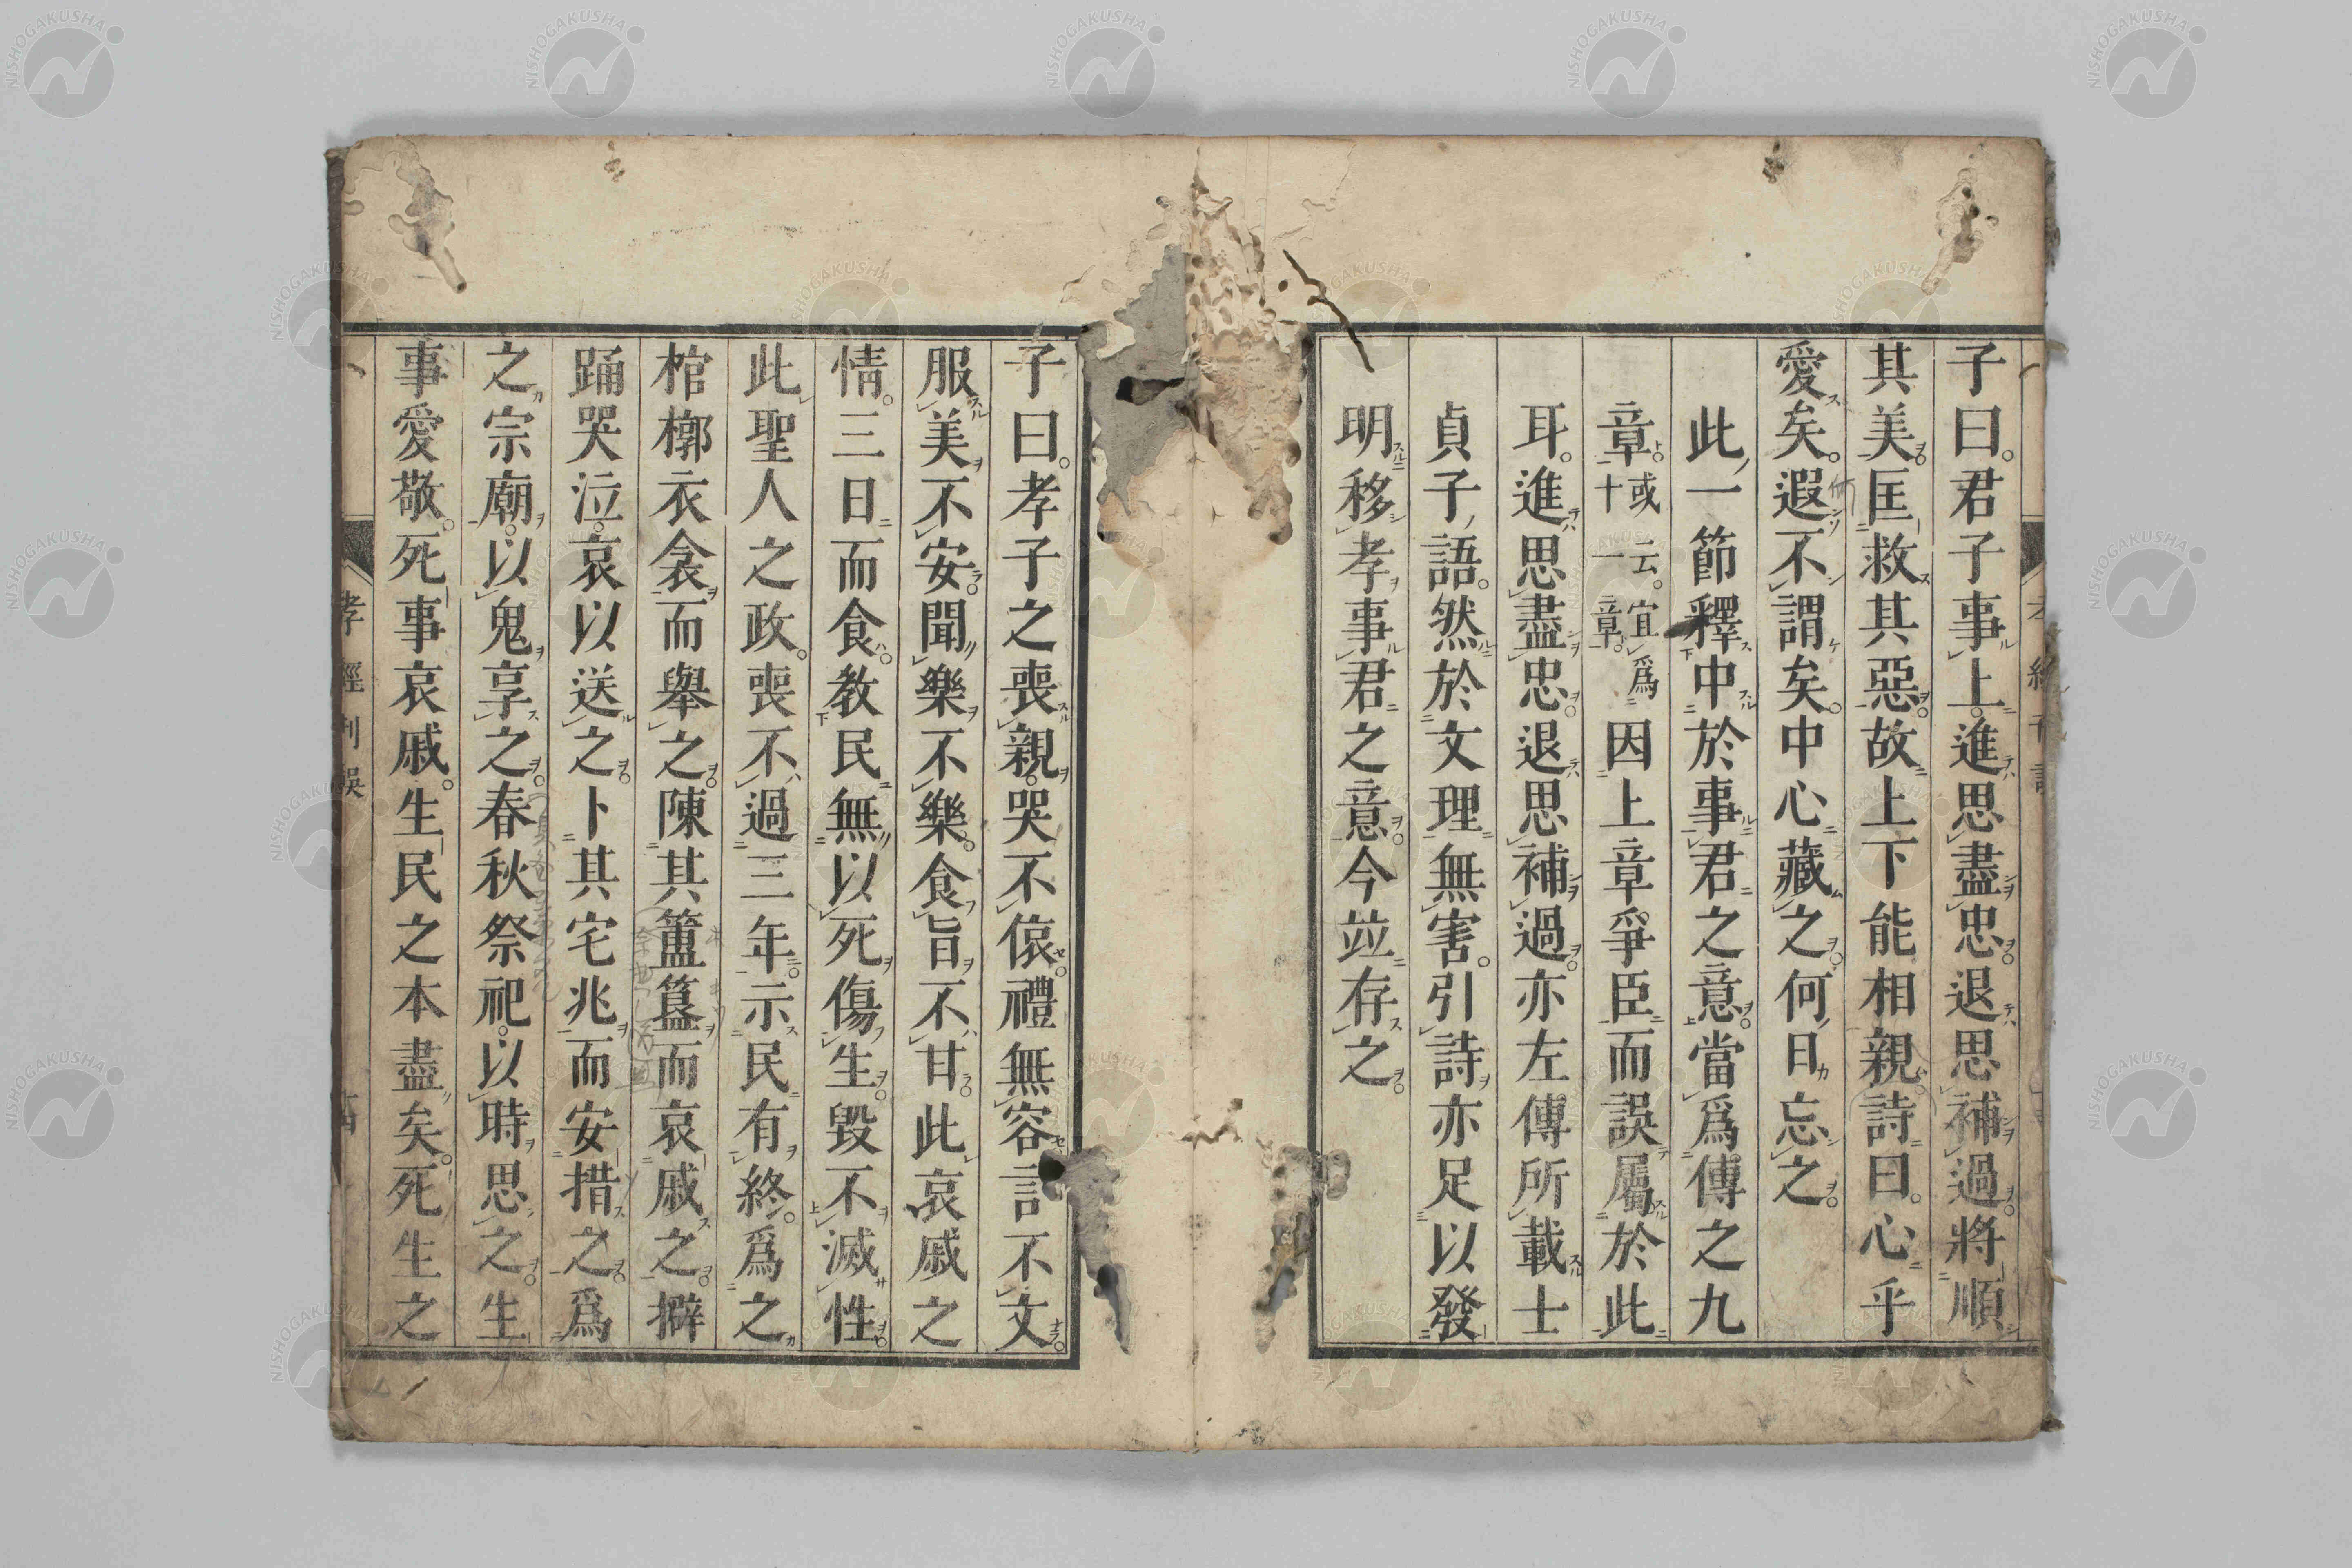 子曰。君子事上。進思盡忠。退思補過。將順
其美。匡救其惡。故上下能相親。詩曰。心乎
愛矣。遐不謂矣。中心藏之。何日忘之。
此一節釋中於事君之意。當爲傳之九
章。或云。宜爲十一章。因上章爭臣而誤屬於此
耳。進思盡忠。退思補過。亦左傳所載士
貞子語。然於文理無害。引詩亦足以發
明移孝事君之意。今竝存之。
子曰。孝子之喪親。哭不偯。禮無容。言不文。
服美不安。聞樂不樂。食旨不甘。此哀戚之
情。三日而食。教民無以死傷生。毀不滅性。
此聖人之政。喪不過三年。示民有終。爲之
棺槨衣衾而舉之。陳其簠簋而哀戚之。擗
踊哭泣。哀以送之。卜其宅兆而安措之。爲
之宗廟。以鬼享之。春秋祭祀。以時思之。生
事愛敬。死事哀戚。生民之本盡矣。死生之
孝經刊誤
NISHOGAKUSHA